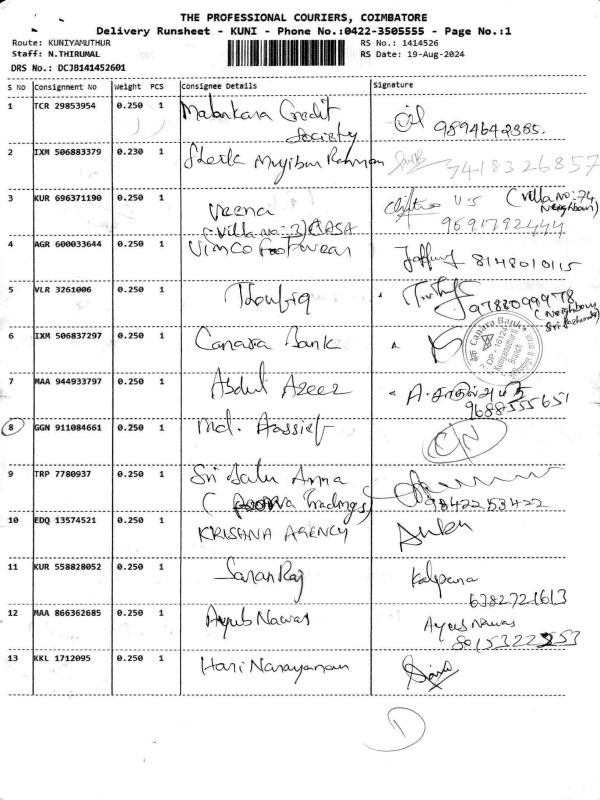 THE PROFESSIONAL COURIERS, COIMBATORE
Delivery Runsheet - KUNI - Phone No.:0422-3505555 - Page No.:1
Route: KUNIYAMUTHUR
RS No.: 1414526
Staff: N.THIRUMAL
RS Date: 19-Aug-2024
DRS No.: DCJB141452601
S No Consignment No Weight PCS Consignee Details Signature
1 TCR 29853954 0.250 1 Malankara Credit
Society 9894642385.
2 IXM 506883379 0.230 1 Sheik Mujibur Rahman 7418326857
3 KUR 696371190 0.250 1 Veena
(Villa no:74
Neighbour)
(Villa no:3) CASA 9691792444
4 AGR 600033644 0.250 1 Vimco Footwear 8148010115
5 VLR 3261006 0.250 1 Thoufiq 9788099978
(Neighbour
6 IXM 506837297 0.250 1 Canara Bank
Canara Bank
Kuniyamuthur
Branch
7 MAA 944933797 0.250 1 Abdul Azeez
9688555651
8 GGN 911084661 0.250 1 Md. Aassief CN
9 TRP 7780937 0.250 1 Sri Anna
Tradings) 9842253422
10 EDQ 13574521 0.250 1 KRISHNA AGENCY
11 KUR 558828052 0.250 1 Saran Raj Kalpana
6382721613
12 MAA 866362685 0.250 1 Ayub Nawas Ayub Nawas
8015322253
13 KKL 1712095 0.250 1 Hari Narayanan
1